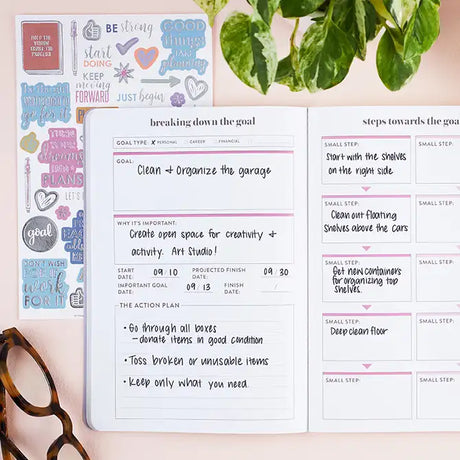 HOLD THE
VISION
TRUST THE
PROCESS
BE strong
start
DOING
KEEP
moving
FORWARD
JUST begin
GOOD
THINGS
goal
DON'T WISH
FOR IT
WORK
FOR IT
breaking down the goal
GOAL TYPE: X PERSONAL CAREER FINANCIAL
GOAL:
Clean + Organize the garage
WHY IT'S IMPORTANT:
Create open space for creativity +
activity. Art Studio!
START DATE: 09/10 PROJECTED FINISH DATE: 09/30
IMPORTANT GOAL DATE: 09/13 FINISH DATE: /
THE ACTION PLAN
• Go through all boxes
– donate items in good condition
• Toss broken or unusable items
• Keep only what you need.
steps towards the goa
SMALL STEP:
Start with the shelves
on the right side
SMALL STEP:
Clean out floating
shelves above the cars
SMALL STEP:
Get new containers
for organizing top
shelves.
SMALL STEP:
Deep clean floor
SMALL STEP:
SMALL STEP:
SMALL STEP:
SMALL STEP:
SMALL STEP:
SMALL STEP: